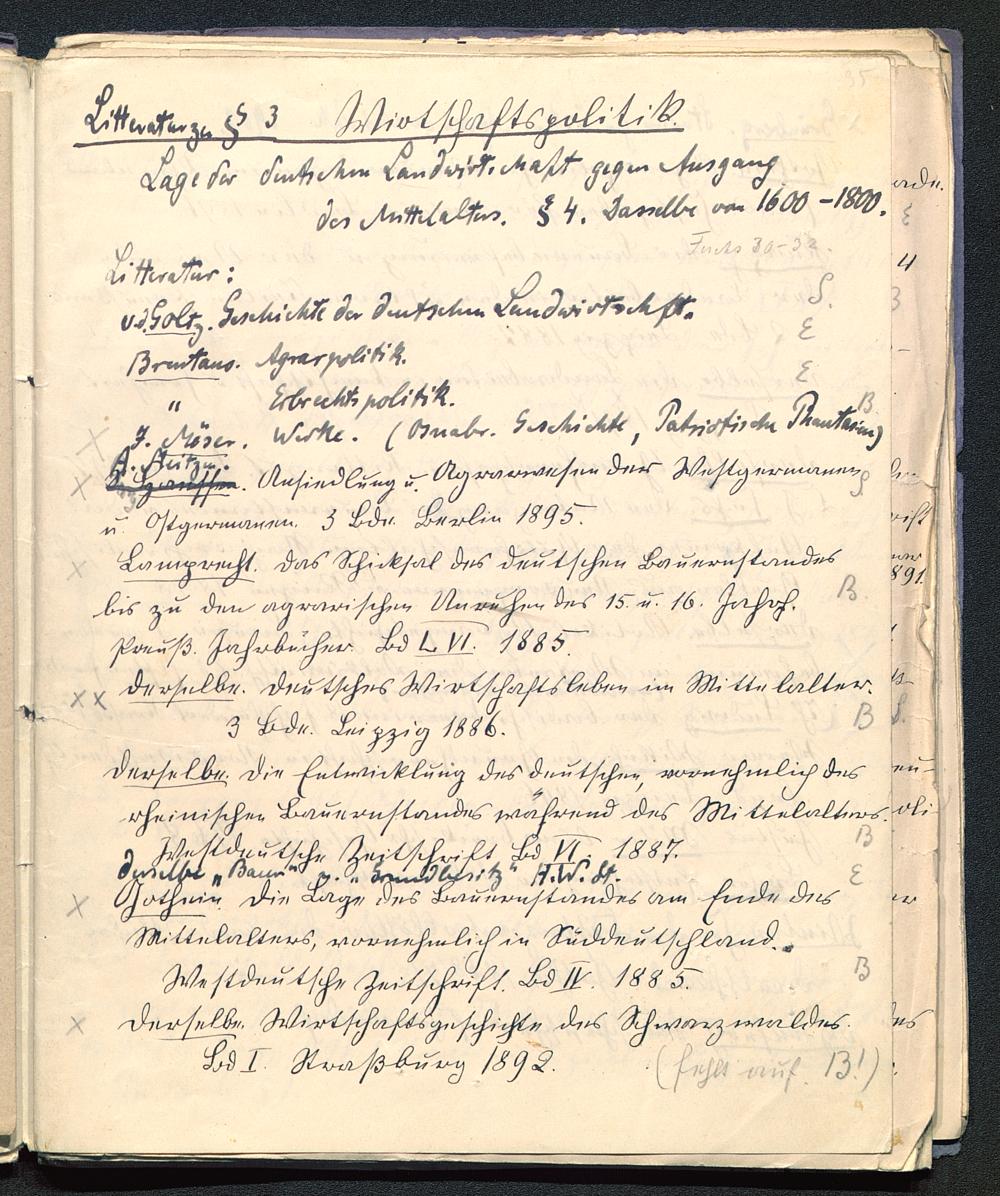 35
Litteratur zu § 3 Wirtschaftspolitik.
Lage der deutschen Landwirtschaft gegen Ausgang
des Mittelalters. § 4. Dasselbe von 1600 – 1800.
Fuchs 30-32.
Litteratur:
v.d. Goltz. Geschichte der deutschen Landwirtschaft. S.
Brentano. Agrarpolitik. E
" Erbrechtspolitik. E
J. Möser. Werke. (Osnabr. Geschichte, Patriotische Phantasien) B.
A. Meitzen.
Ansiedlung u. Agrarwesen der Westgermanen
u. Ostgermanen. 3 Bde. Berlin 1895.
Lamprecht. Das Schicksal des deutschen Bauernstandes
bis zu den agrarischen Unruhen des 15. u. 16. Jahrh. B.
Preuß. Jahrbücher. Bd LVI. 1885.
Derselbe. Deutsches Wirtschaftsleben im Mittelalter.
3 Bde. Leipzig 1886. B
Derselbe. Die Entwicklung des deutschen, vornehmlich des
rheinischen Bauernstandes während des Mittelalters.
Westdeutsche Zeitschrift Bd VI. 1887. B
Derselbe "Bauer" u. "Grundbesitz" H.W. St. E
Gothein. Die Lage des Bauernstandes am Ende des
Mittelalters, vornehmlich in Süddeutschland.
Westdeutsche Zeitschrift. Bd IV. 1885. B
Derselbe. Wirtschaftsgeschichte des Schwarzwaldes.
Bd I. Straßburg 1892. (fehlt auf B!)